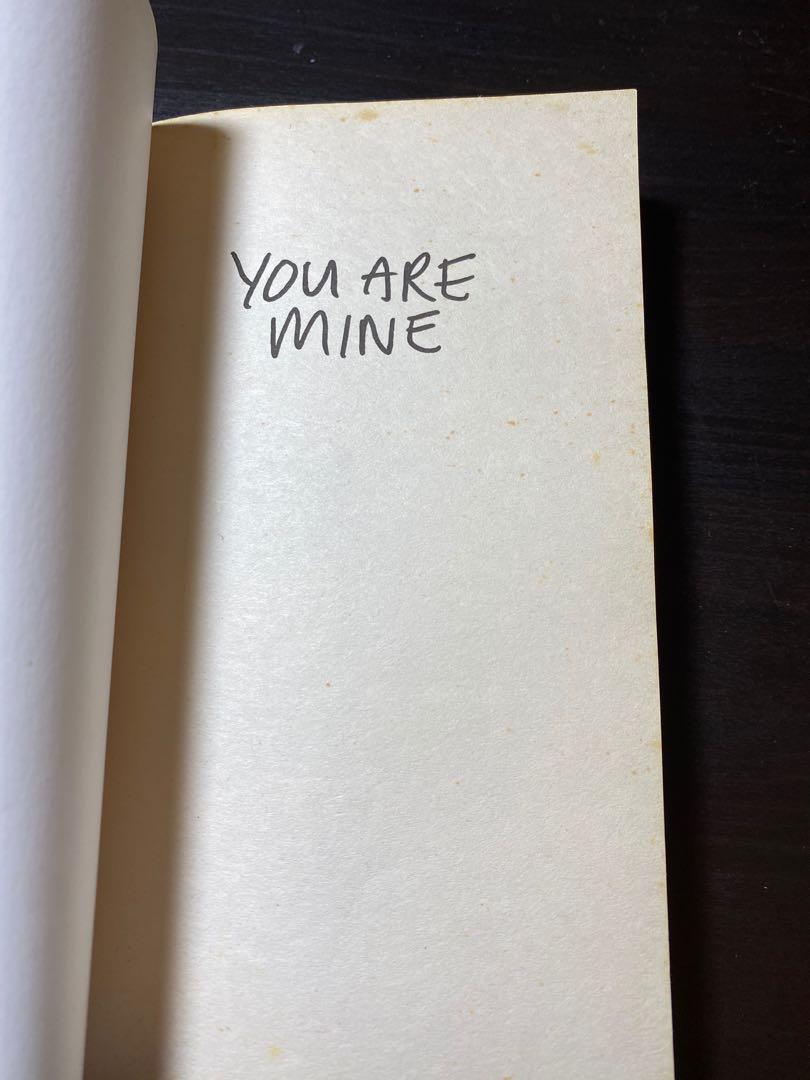 YOU ARE
MINE